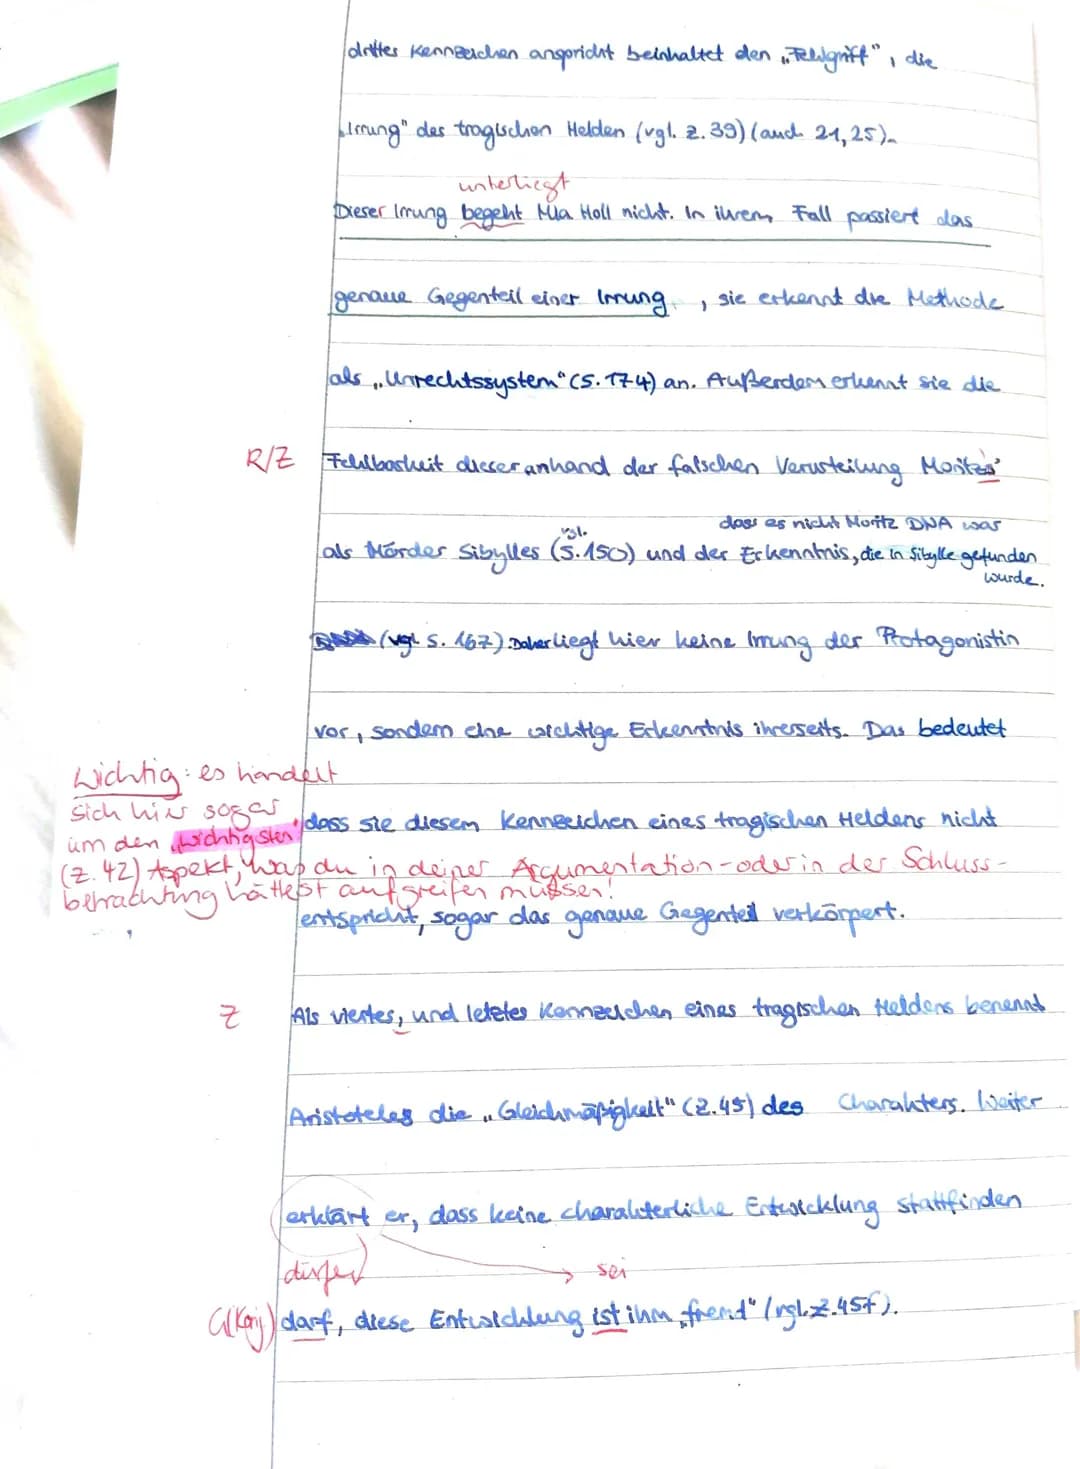 drittes Kennzeichen angpricht beinhaltet den „Fehlgriff", die
„Irrung" des tragischen Helden (vgl. Z. 39) (auch 21, 25).
unterliegt
Dieser Irrung begeht Mia Holl nicht. In ihrem Fall passiert das
genaue Gegenteil einer Irrung, sie erkennt die Methode
als „Unrechtssystem" (S. 174) an. Außerdem erkennt sie die
R/Z Fehlbarkeit dieser anhand der falschen Verurteilung Moritzs'
dass es nicht Moritz DNA war
vgl.
als Mörder Sibylles (S. 150) und der Erkenntnis, die in Sibylle gefunden
wurde.
(vgl. S. 167). Daher liegt hier keine Irrung der Protagonistin
vor, sondern eine wichtige Erkenntnis ihrerseits. Das bedeutet
Wichtig: es handelt
sich hier sogar
dass sie diesem Kennzeichen eines tragischen Helden nicht
um den „wichtigsten"
(Z. 42) Aspekt, was du in deiner Argumentation - oder in der Schluss-
betrachtung hättest aufgreifen müssen!
entspricht, sogar das genaue Gegenteil verkörpert.
Z Als viertes, und letztes Kennzeichen eines tragischen Heldens benennt
Aristoteles die „Gleichmäßigkeit" (Z. 45) des Charakters. Weiter
erklärt er, dass keine charakterliche Entwicklung stattfinden
dürfe sei
G(Konj) darf, diese Entwicklung ist ihm „fremd" (vgl. Z. 45f).